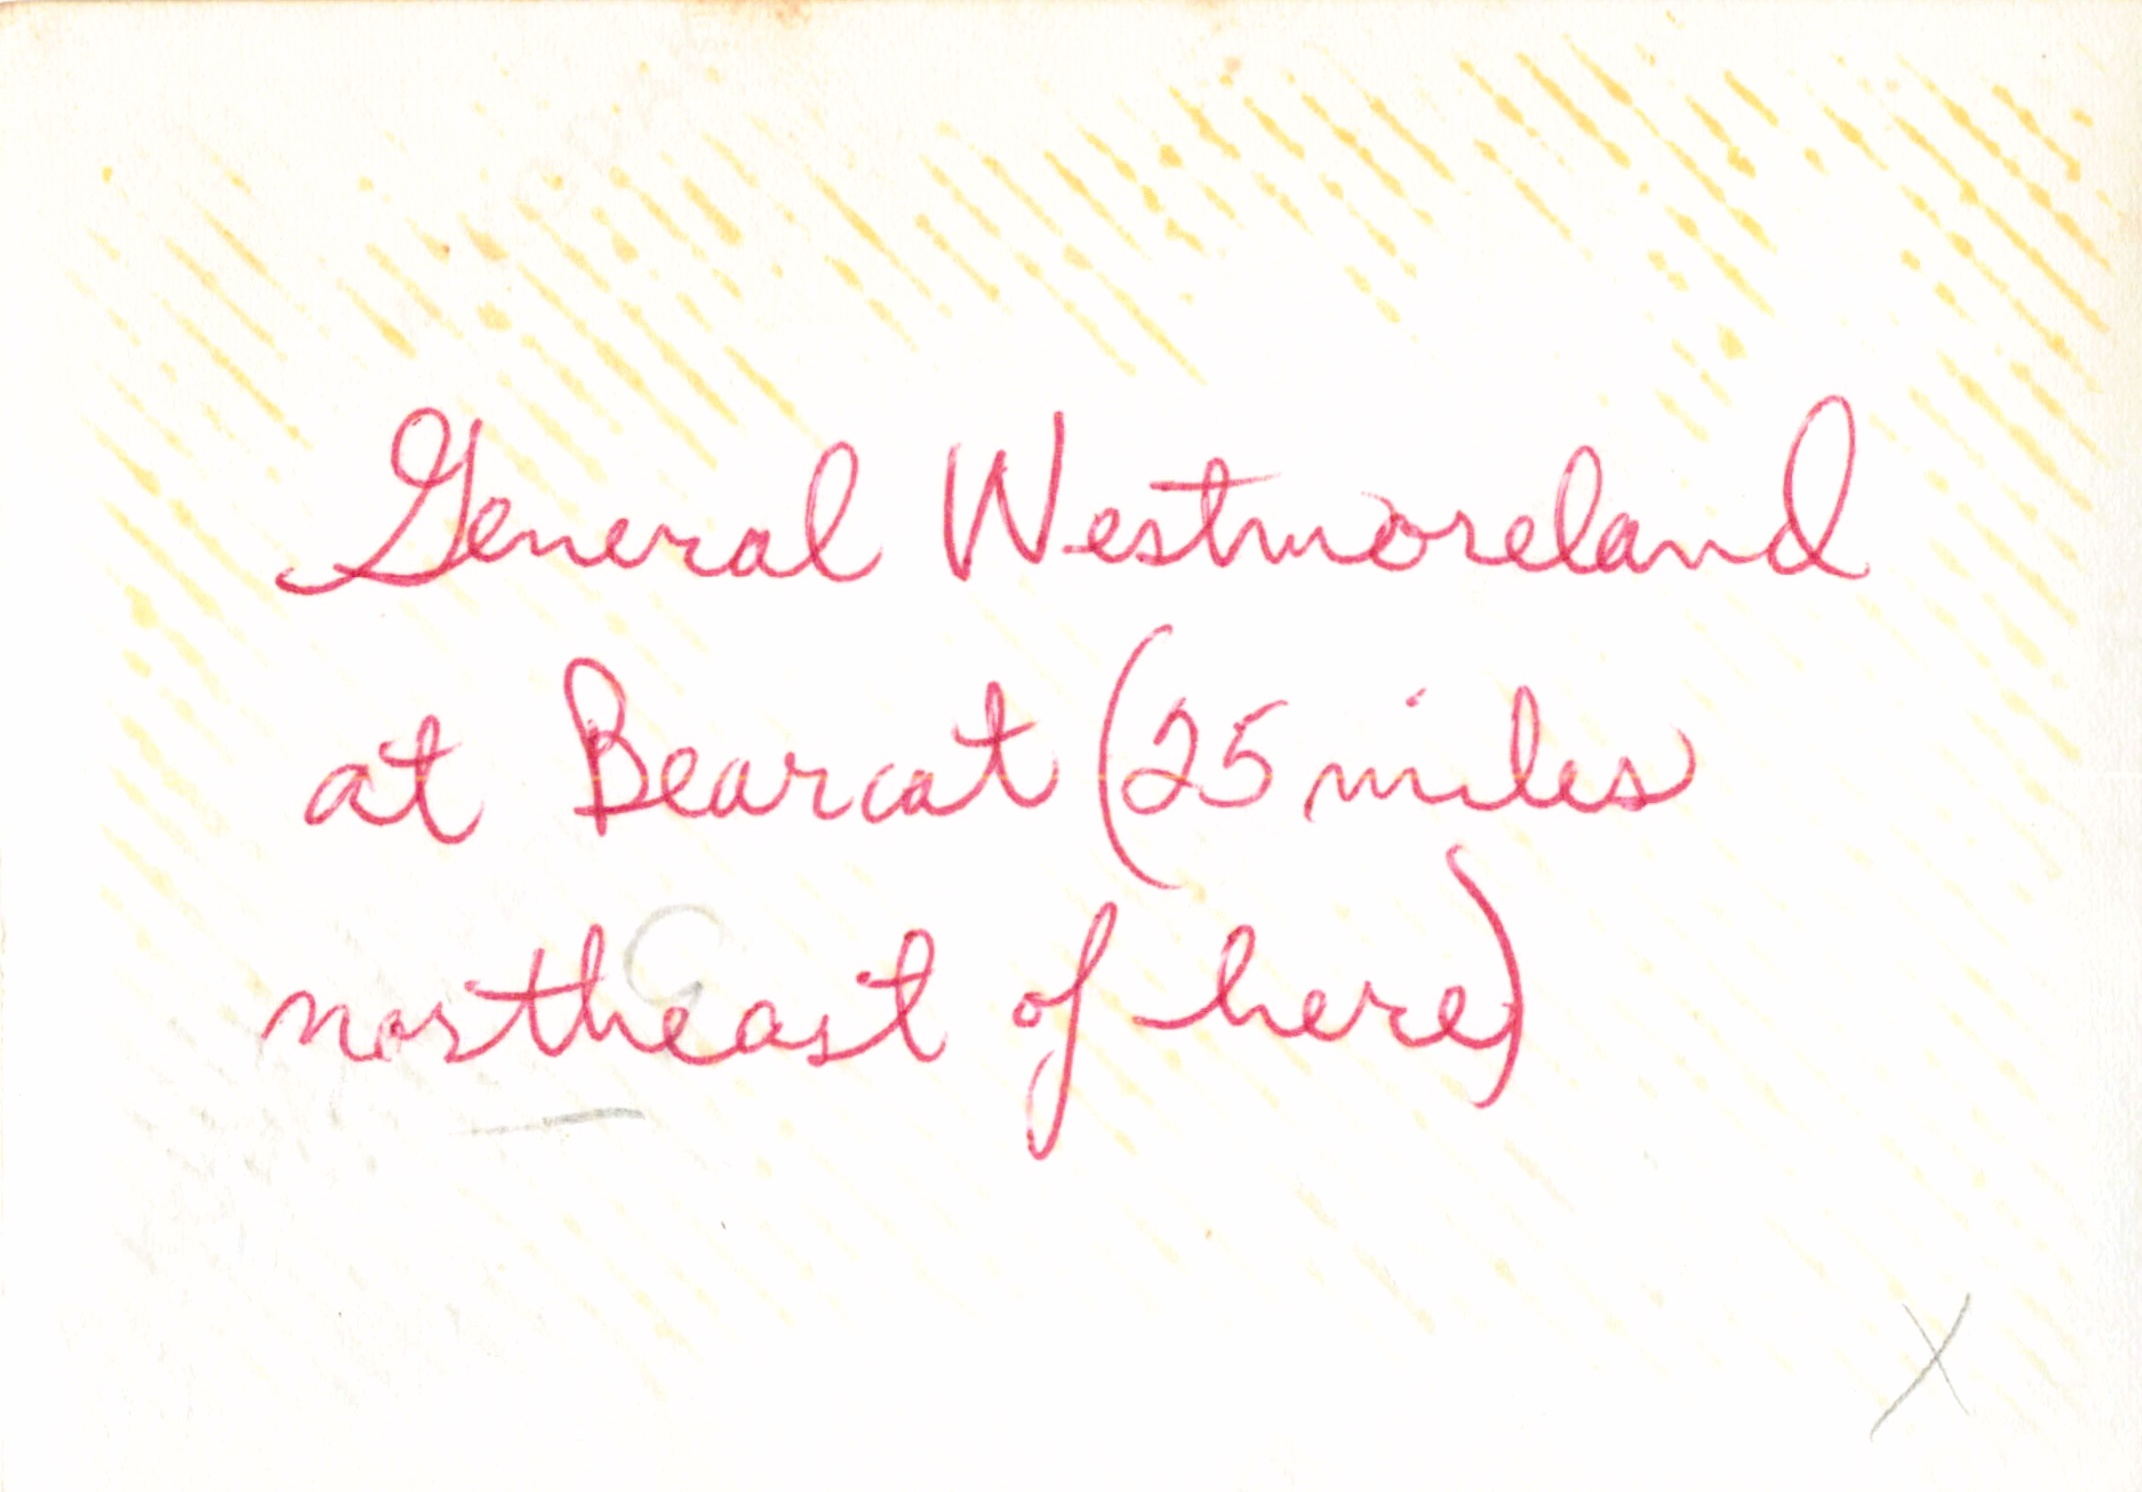 General Westmoreland
at Bearcat (25 miles
northeast of here)
X